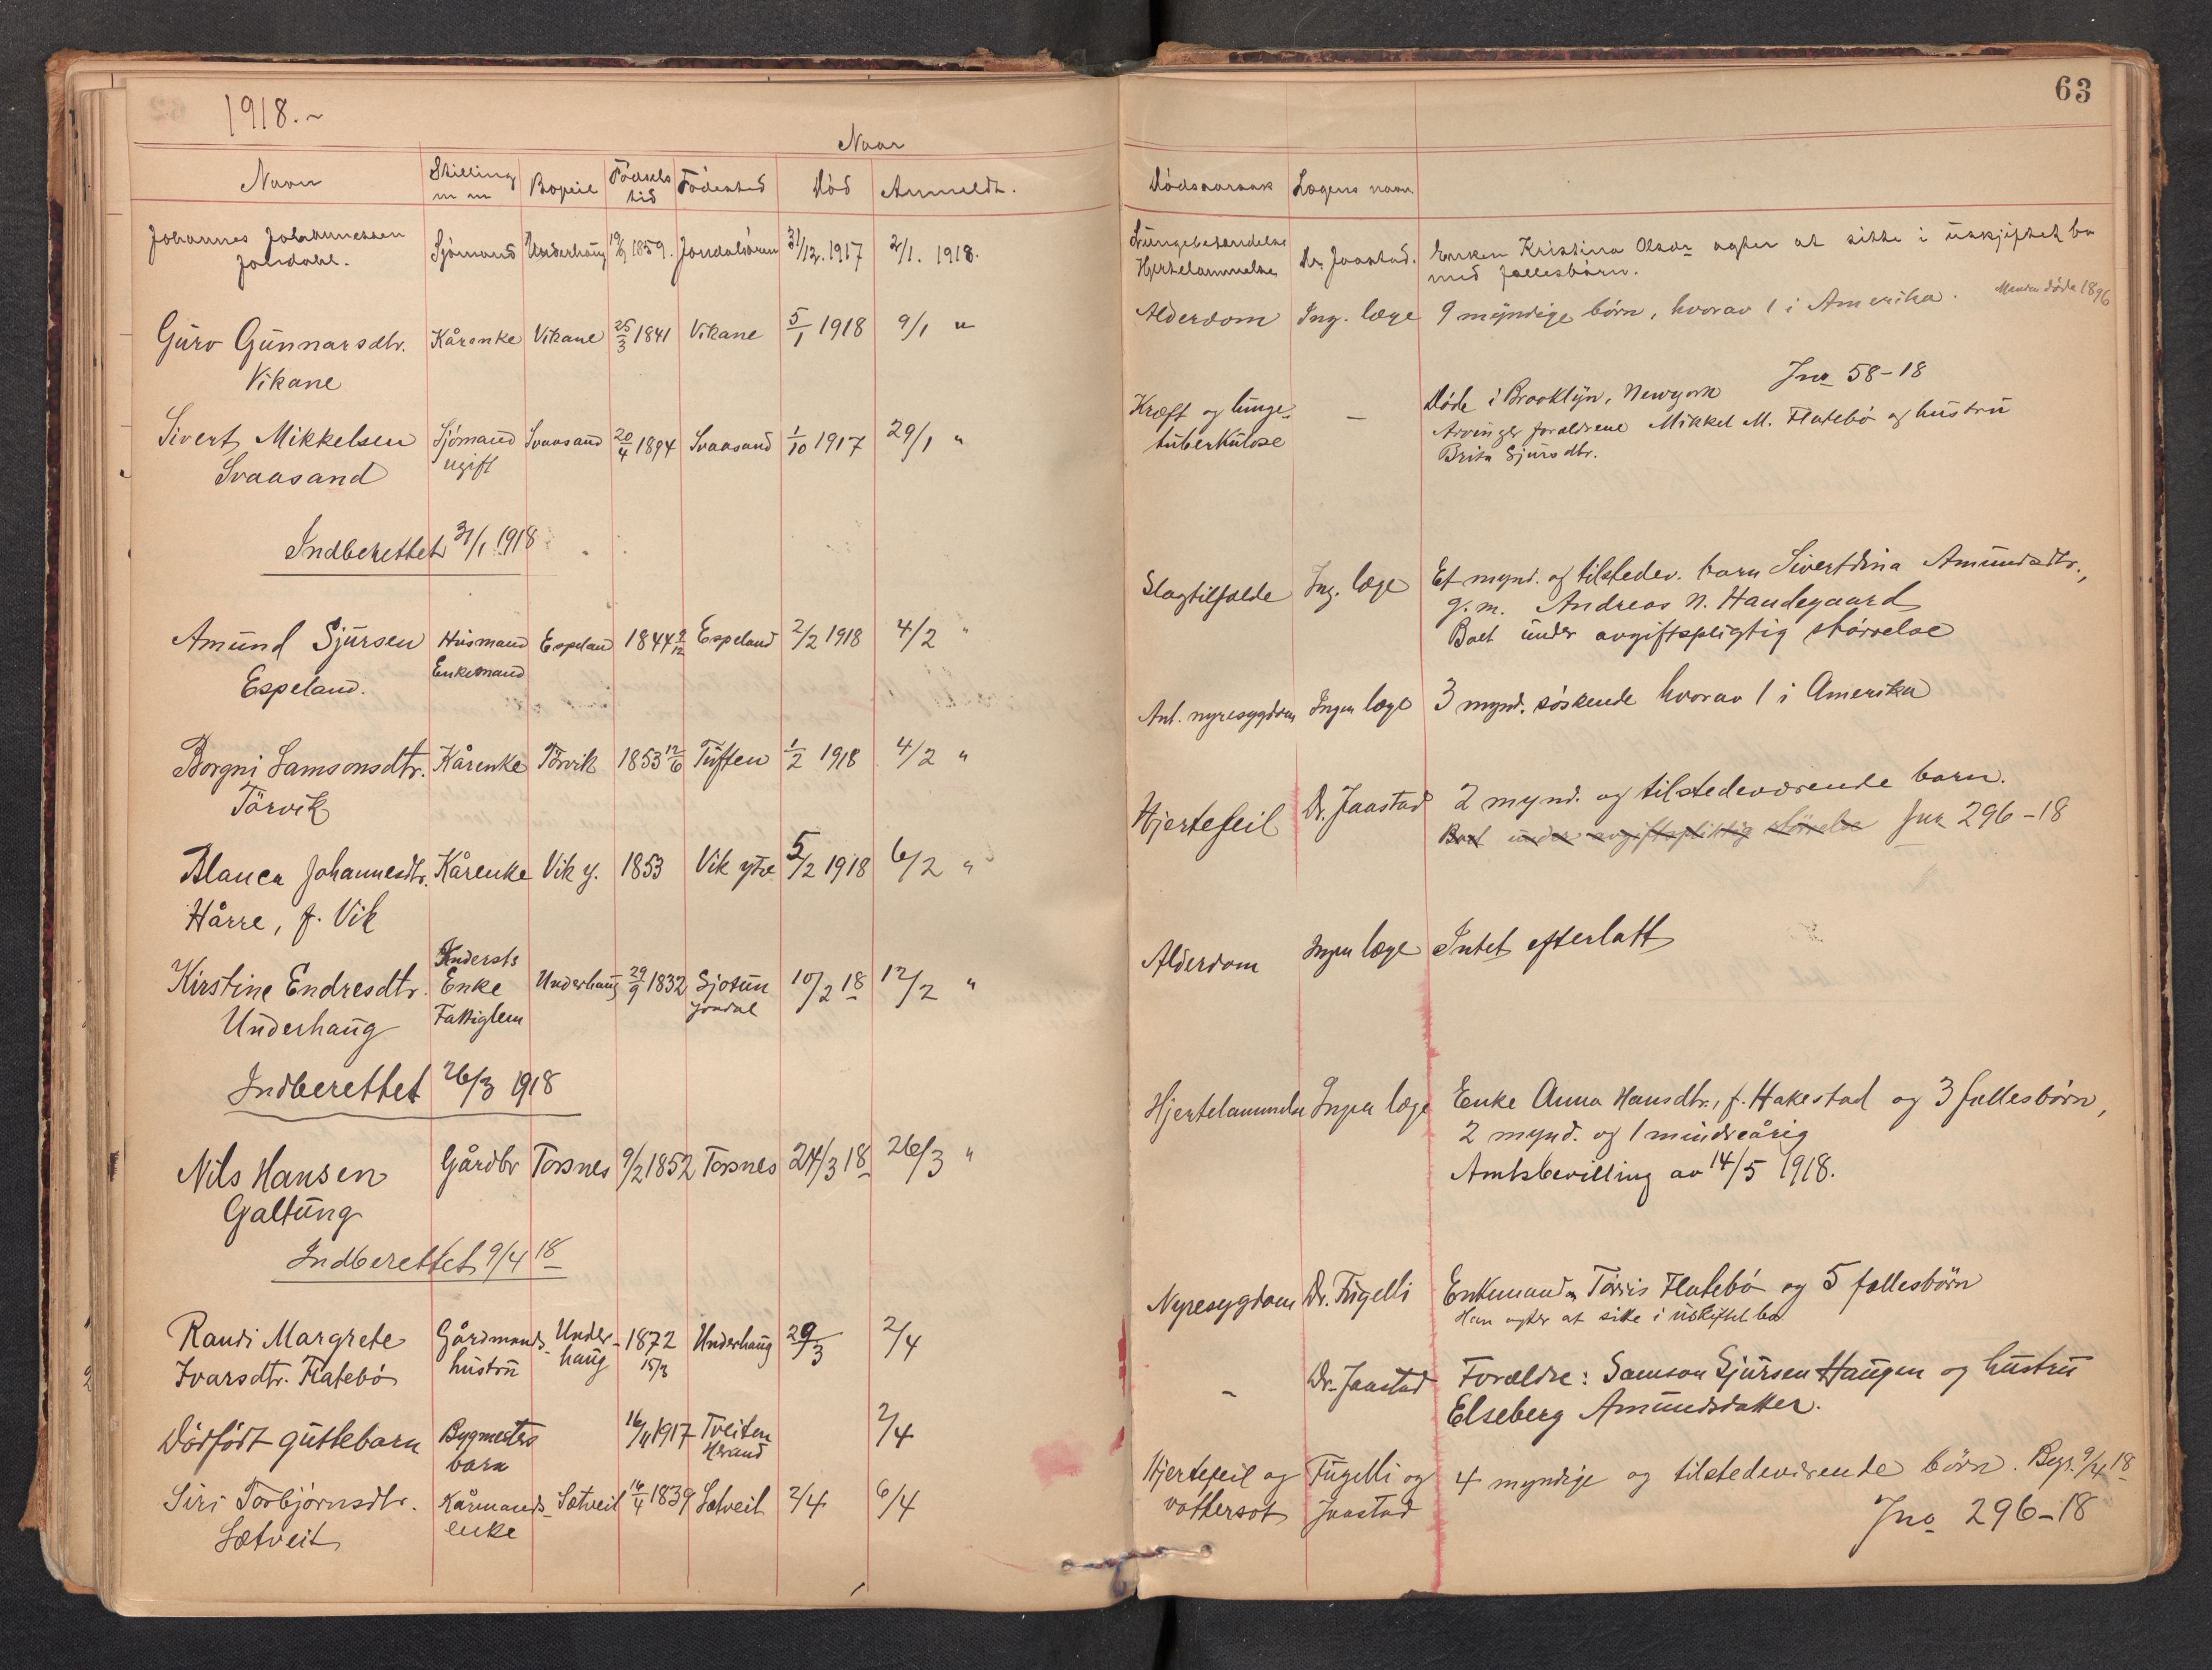 63
1918.~
Naar
Navn Stilling m m Bopæl Fødsels tid Fødested Død Anmeldt. Dødsaarsak Lægens navn
Johannes Johannessen Sjømand Underhaug 19/9 1859. Jondalsøren 31/12. 1917 2/1. 1918. Lungebetændelse Dr. Jaastad. Enken Kristina Olsdr agter at sitte i uskjiftet bo
Jondahl. Hjertelammelse med fællesbørn.
Guro Gunnarsdtr. Kårenke Vikane 25/3 1841 Vikane 5/1 1918 9/1 " Alderdom Ing. læge 9 myndige børn, hvorav 1 i Amerika. Manden døde 1896
Vikane
Sivert Mikkelsen Sjömand Svaasand 20/4 1894 Svaasand 1/10 1917 29/1 " Kræft og lunge- — Døde i Brooklyn, Newyork Jnr 58-18
Svaasand ugift tuberkulose Arvinger forældrene Mikkel M. Flatebø og hustru
Brita Sjursdtr.
Indberettet 31/1 1918
Amund Sjursen Husmand Espeland 1844 9/12 Espeland 2/2 1918 4/2 " Slagtilfælde Ing. læge Et mynd. og tilstedev. barn Sivertdina Amundsdtr.,
Espeland. Enkemand g.m. Andreas N. Handegaard
Boet under avgiftspligtig størrelse
Borgni Samsonsdtr. Kårenke Törvik 1853 12/6 Tuften 1/2 1918 4/2 " Ant. nyresygdom Ingen læge 3 mynd. søskende hvorav 1 i Amerika
Törvik
Blanca Johannesdtr. Kårenke Vik y. 1853 Vik ytre 5/2 1918 6/2 " Hjertefeil Dr. Jaastad 2 mynd. og tilstedeværende barn.
Hårre, f. Vik Boet under avgiftspliktig størrelse Jnr 296-18
Kirstine Endresdtr. Inderst Enke Underhaug 29/9 1832 Sjotun 10/2 18 12/2 " Alderdom Ingen læge Intet efterlatt
Underhaug Fattiglem Jondal
Indberettet 26/3 1918
Nils Hansen Gårdbr Torsnes 9/2 1852 Torsnes 24/3 18 26/3 " Hjertelammelse Ingen læge Enke Anna Hansdtr., f. Hakestad og 3 fællesbørn,
Galtung 2 mynd. og 1 mindreårig
Amtsbevilling av 14/5 1918.
Indberettet 9/4 18
Randi Margrete Gårdmands- Under- 1872 Underhaug 29/3 2/4 Nyresygdom Dr. Fugelli Enkemand Torris Flatebø og 5 fællesbörn
Ivarsdtr. Flatebø hustru haug 15/3 Han agter at sitte i uskiftet bo
Dødfødt guttebarn Bygmesters 16/11 1917 Tveiten 2/4 – Dr. Jaastad Forældre: Samson Sjursen Haugen og hustru
barn Herand Elseberg Amundsdatter.
Siri Torbjörnsdtr. Kårmands- Sætveit 16/4 1839 Sætveit 2/4 6/4 Hjertefeil og Fugelli og 4 myndige og tilstedeværende börn. Begr. 9/4 18
Sætveit enke vattersot Jaastad Jno 296-18